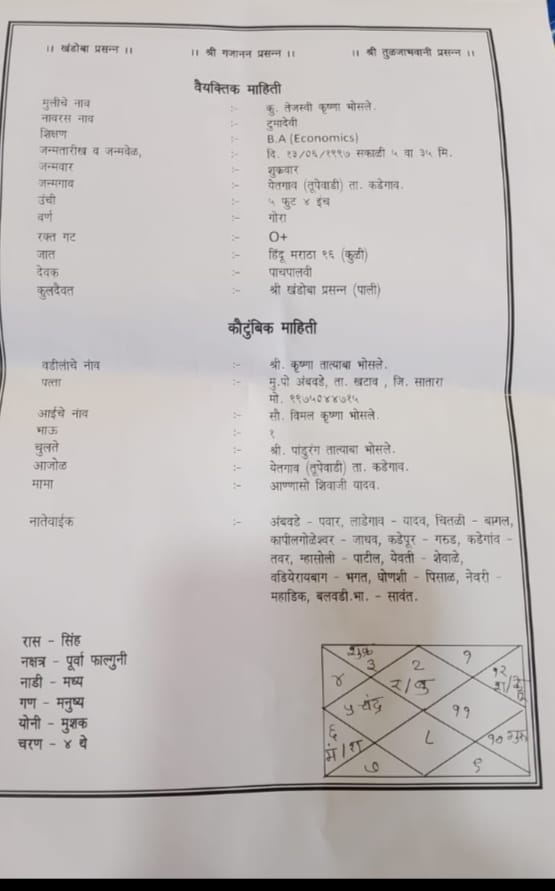 ।। खंडोबा प्रसन्न ।। ।। श्री गजानन प्रसन्न ।। ।। श्री तुळजाभवानी प्रसन्न ।।
वैयक्तिक माहिती
मुलीचे नाव :- कु. तेजस्वी कृष्णा भोसले.
नावरस नाव :- टुमादेवी
शिक्षण :- B.A (Economics)
जन्मतारीख व जन्मवेळ, :- दि. १३/०६/१९९७ सकाळी ५ वा ३५ मि.
जन्मवार :- शुक्रवार
जन्मगाव :- येतगाव (तूपेवाडी) ता. कडेगाव.
उंची :- ५ फुट ४ इंच
वर्ण :- गोरा
रक्त गट :- O+
जात :- हिंदू मराठा ९६ (कुळी)
देवक :- पाचपालवी
कुलदैवत :- श्री खंडोबा प्रसन्न (पाली)
कौटुंबिक माहिती
वडीलांचे नांव :- श्री. कृष्णा तात्याबा भोसले.
पत्ता :- मु.पो अंबवडे, ता. खटाव , जि. सातारा
मो. ९९७५०४४७१५
आईचे नांव :- सौ. विमल कृष्णा भोसले.
भाऊ :- १
चुलते :- श्री. पांडुरंग तात्याबा भोसले.
आजोळ :- येतगाव (तूपेवाडी) ता. कडेगाव.
मामा :- आण्णासो शिवाजी यादव.
नातेवाईक :- अंबवडे - पवार, लाडेगाव - यादव, चितळी - बागल,
कापीलगोळेश्वर - जाधव, कडेपूर - गरुड, कडेगांव -
तवर, म्हासोली - पाटील, येवती - शेवाळे,
वडियेरायबाग - भगत, घोणशी - पिसाळ, नेवरी -
महाडिक, बलवडी.भा. - सावंत.
रास - सिंह
नक्षत्र - पूर्वा फाल्गुनी
नाडी - मध्य
गण - मनुष्य
योनी - मुशक
चरण - ४ थे
शुक्र
३ २ १
४ र/बु १२
५ चंद्र ११
६ ८ १० गुरु
७ ९